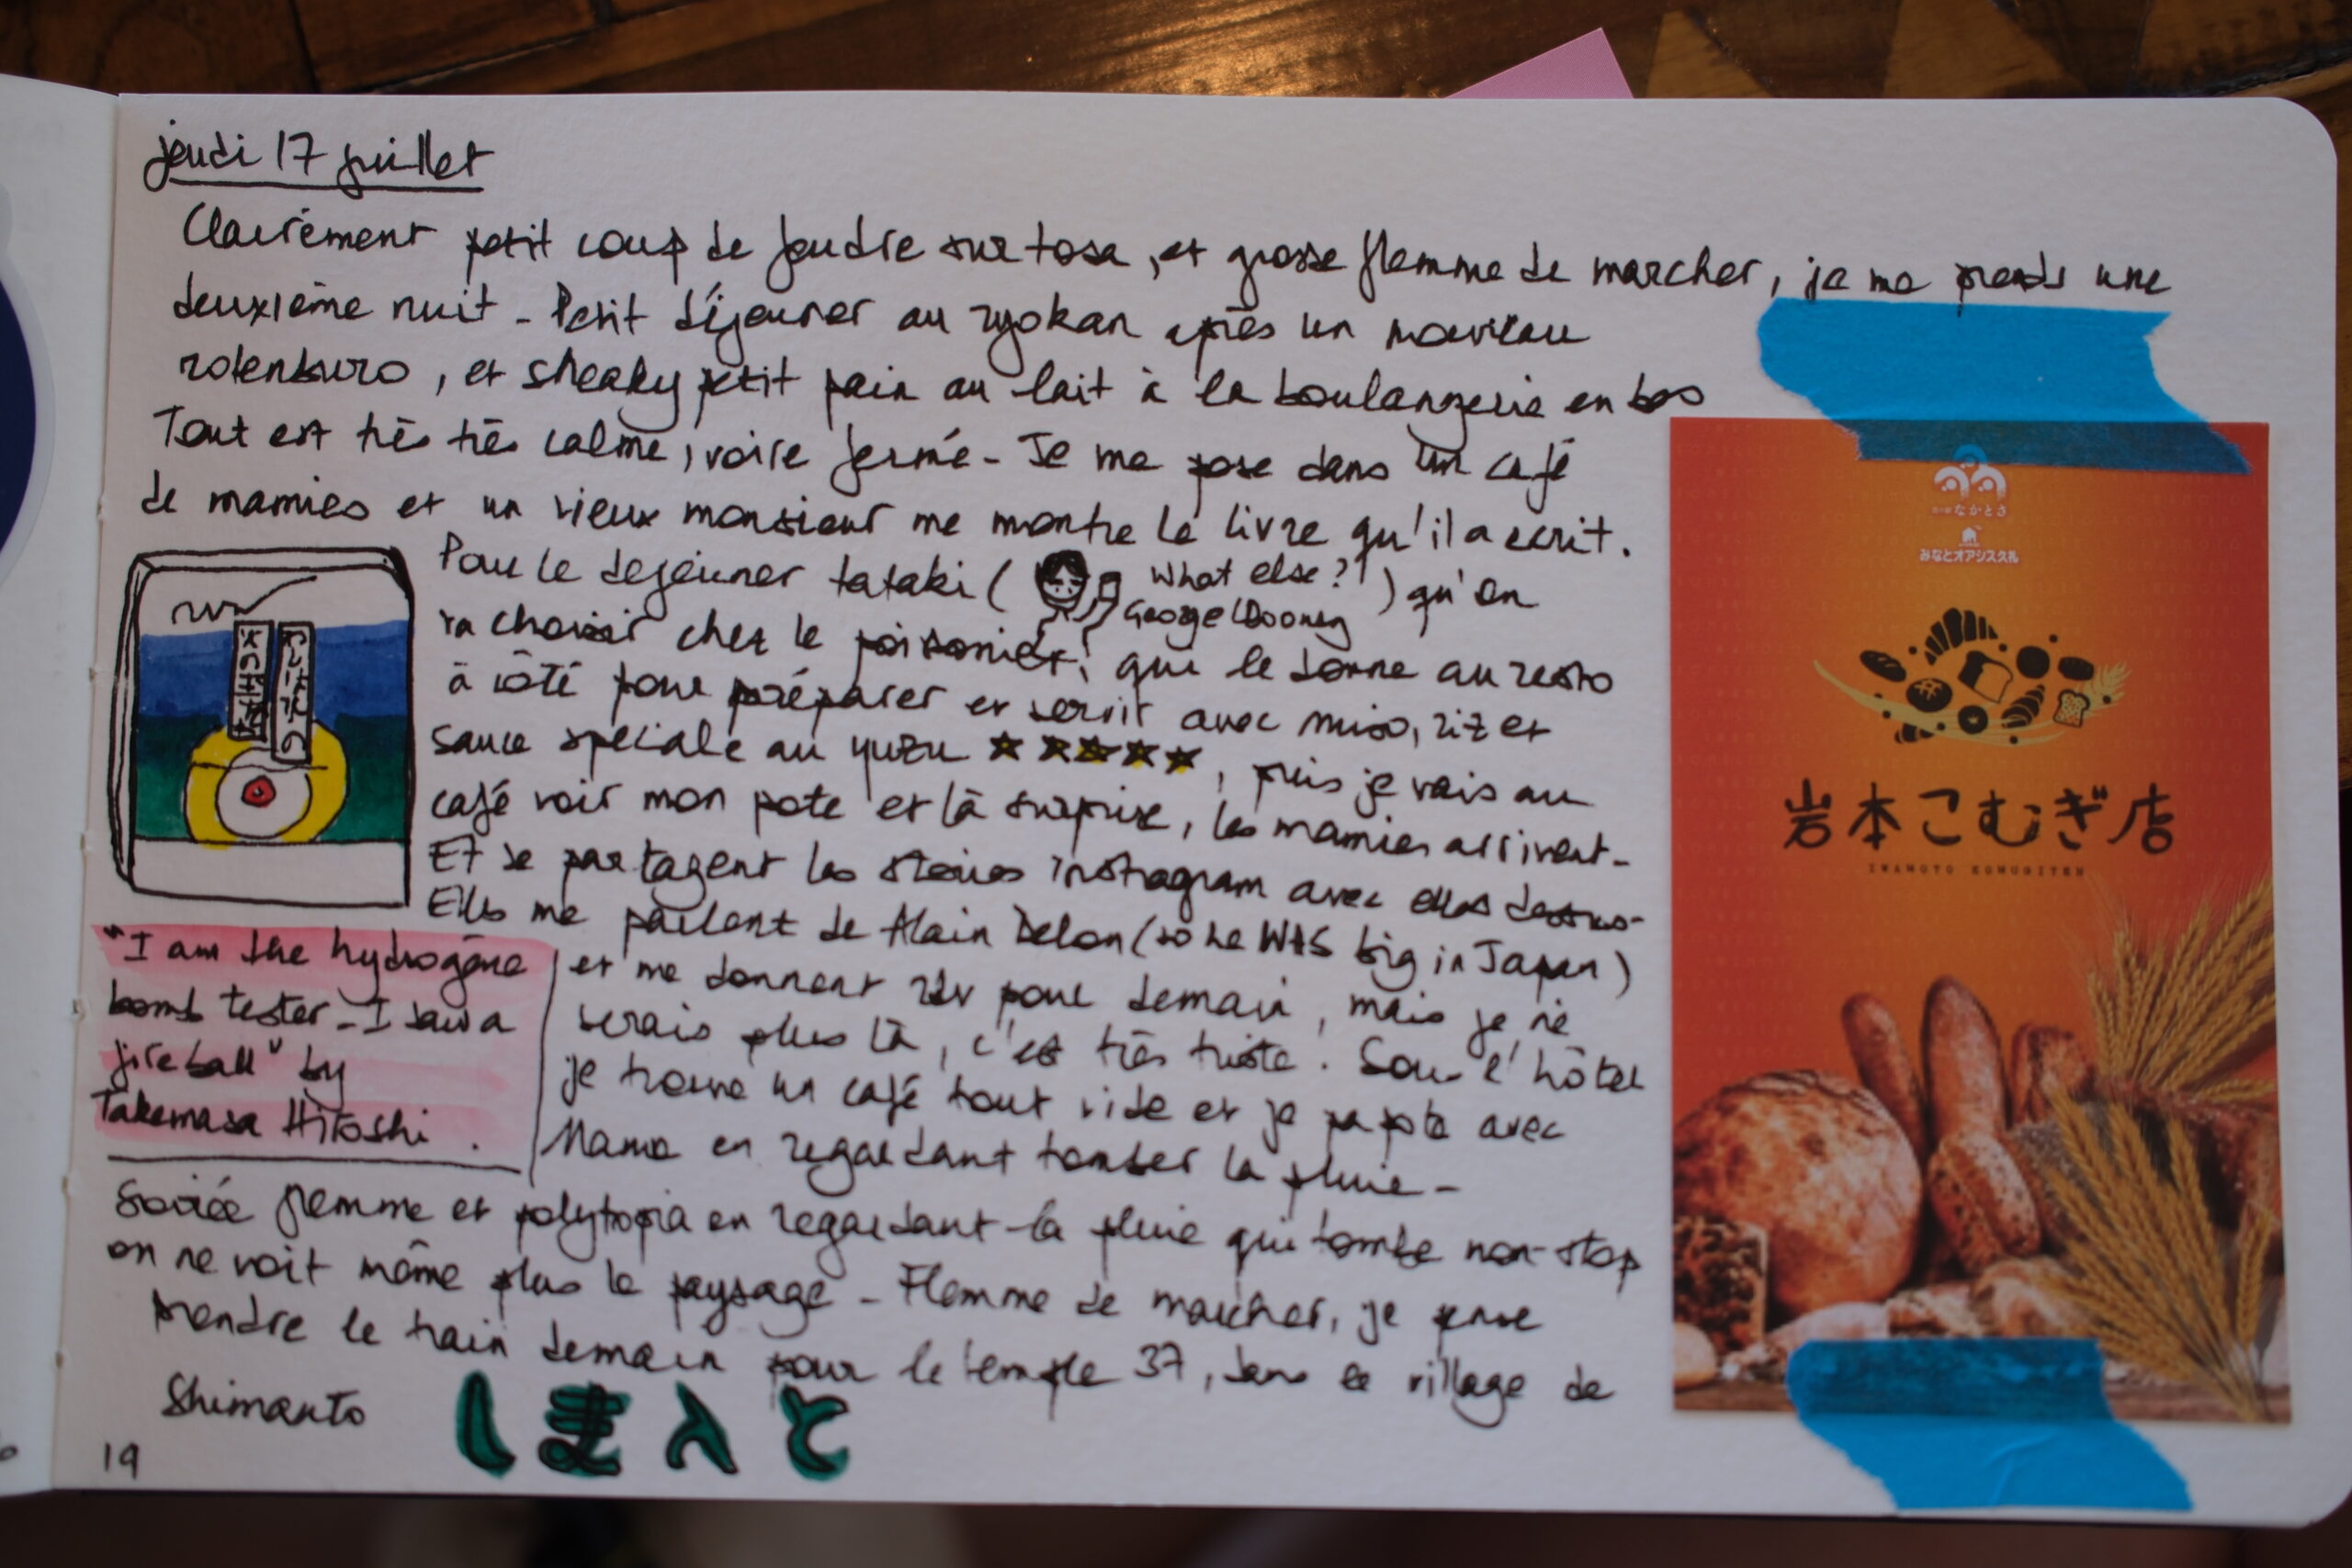 jeudi 17 juillet
Clairement petit coup de foudre sur tosa, et grosse flemme de marcher, je me prends une
deuxième nuit - Petit déjeuner au ryokan après un nouveau
rotenburo, et sneaky petit pain au lait à la boulangerie en bas
Tout est très très calme, voire fermé - Je me pose dans un café
de mamies et un vieux monsieur me montre le livre qu'il a ecrit.
Pour le dejeuner tataki (
What else?"
George Clooney
) qu'on
va choisir chez le poisonier, que le donne au resto
à côté pour préparer et servir avec miso, riz et
sauce speciale au yuzu ★★★★★, puis je vais au
café voir mon pote et là surprise, les mamies arrivent -
Et se partagent les stories instragram avec elles dessus-
Elles me parlent de Alain Delon (so he WAS big in Japan)
et me donnent rdv pour demain, mais je ne
serais plus là, c'est très triste. Sous l'hôtel
je trouve un café tout vide et je papote avec
Mama en regardant tomber la pluie -
"I am the hydrogène
bomb tester - I saw a
fireball" by
Takemasa Hitoshi.
Soirée flemme et polytopia en regardant la pluie qui tombe non-stop
on ne voit même plus le paysage - Flemme de marcher, je pense
prendre le train demain pour le temple 37, dans le village de
Shimanto しまんと
19
なかとさ
みなとオアシス久礼
岩本こむぎ店
IWAMOTO KOMUGITEN